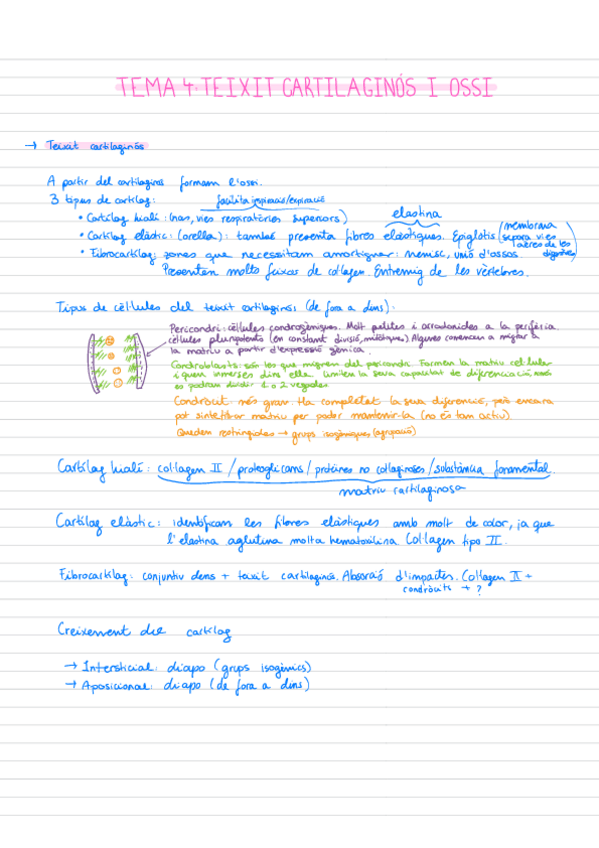 TEMA 4. TEIXIT CARTILAGINÓS I OSSI
→ Teixit cartilaginós
A partir del cartilaginós formem l'ossi.
3 tipus de cartílag: facilita inspiració/expiració
• Cartílag hialí: (nas, vies respiratòries superiors) elastina
• Cartílag elàstic: (orella): també presenta fibres elàstiques. Epiglotis (membrana separa vies aèries de les digestives)
• Fibrocartílag: zones que necessitam amortiguar: menisc, unió d'ossos.
Presenten molts feixos de collagen. Entremig de les vèrtebres.
Tipus de cèl·lules del teixit cartilaginós (de fora a dins):
Pericondri: cèl·lules condrogèniques. Molt petites i arrodonides a la perifèria
cèl·lules pluripotents (en constant divisió, mitòtiques). Algunes comencen a migrar a
la matriu a partir d'expressió gènica.
Condroblasts: són los que migren del pericondri. Formen la matriu cel·lular
i quan inmersos dins ella. Limiten la seva capacitat de diferenciació només
es podran dividir 1 o 2 vegades
Condròcit: més gran. Ha completat la seva diferenció, però encara
pot sintetitzar matriu per poder mantenir-la (no és tam actiu).
Queden restringides → grups isogèniques (agrupació)
Cartílag hialí: col·lagen II / proteoglicans / proteïnes no collaginoses / substància fonamental.
matriu cartilaginosa
Cartílag elàstic: identificam les fibres elàstiques amb molt de color, ja que
l'elastina aglutina molta hematoxilina Col·lagen tipo II.
Fibrocartílag: conjuntiu dens + teixit cartilaginós. Absorció d'impactes. Collagen II +
condròcits + ?
Creixement del cartílag
→ Intersticial: diapo (grups isogènics)
→ Aposicional: diapo (de fora a dins)